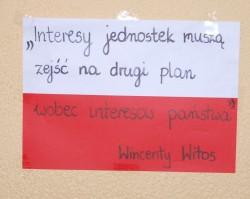 „Interesy jednostek muszą
zejść na drugi plan
wobec interesów państwa”
Wincenty Witos